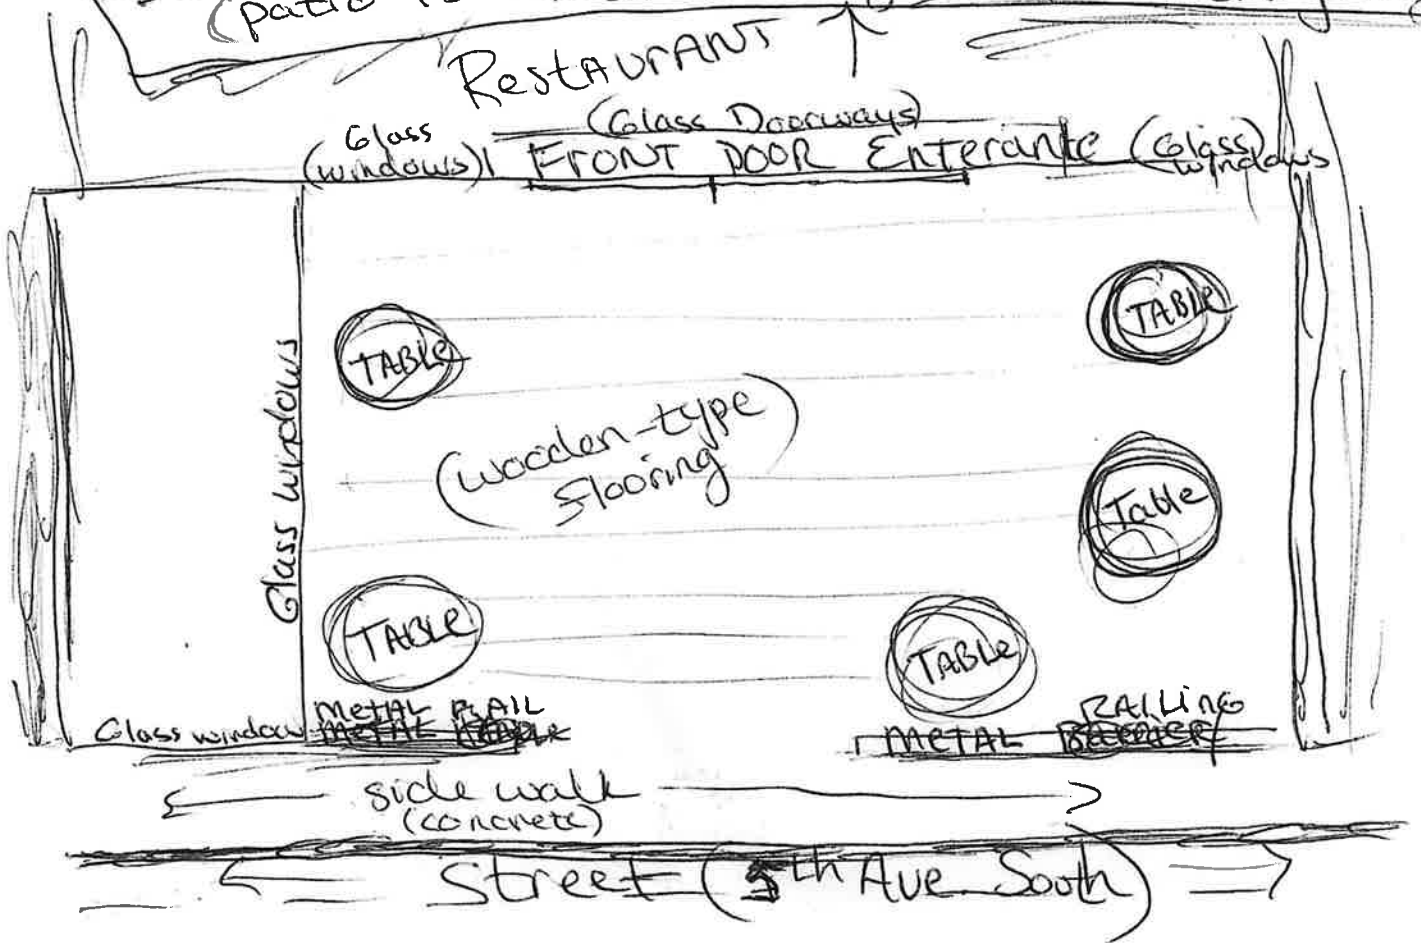 (patio
RestAurANT
(Glass Doorways)
Glass
(windows)
FRONT DOOR Enterante
(Glass)
windows
TABLe
TABLe
Glass windows
(wooden-type
Flooring)
Table
TABLe
TABLe
METAL RAIL
Glass window
METAL
RAILING
METAL
side walk
(concrete)
Street (5th Ave South)